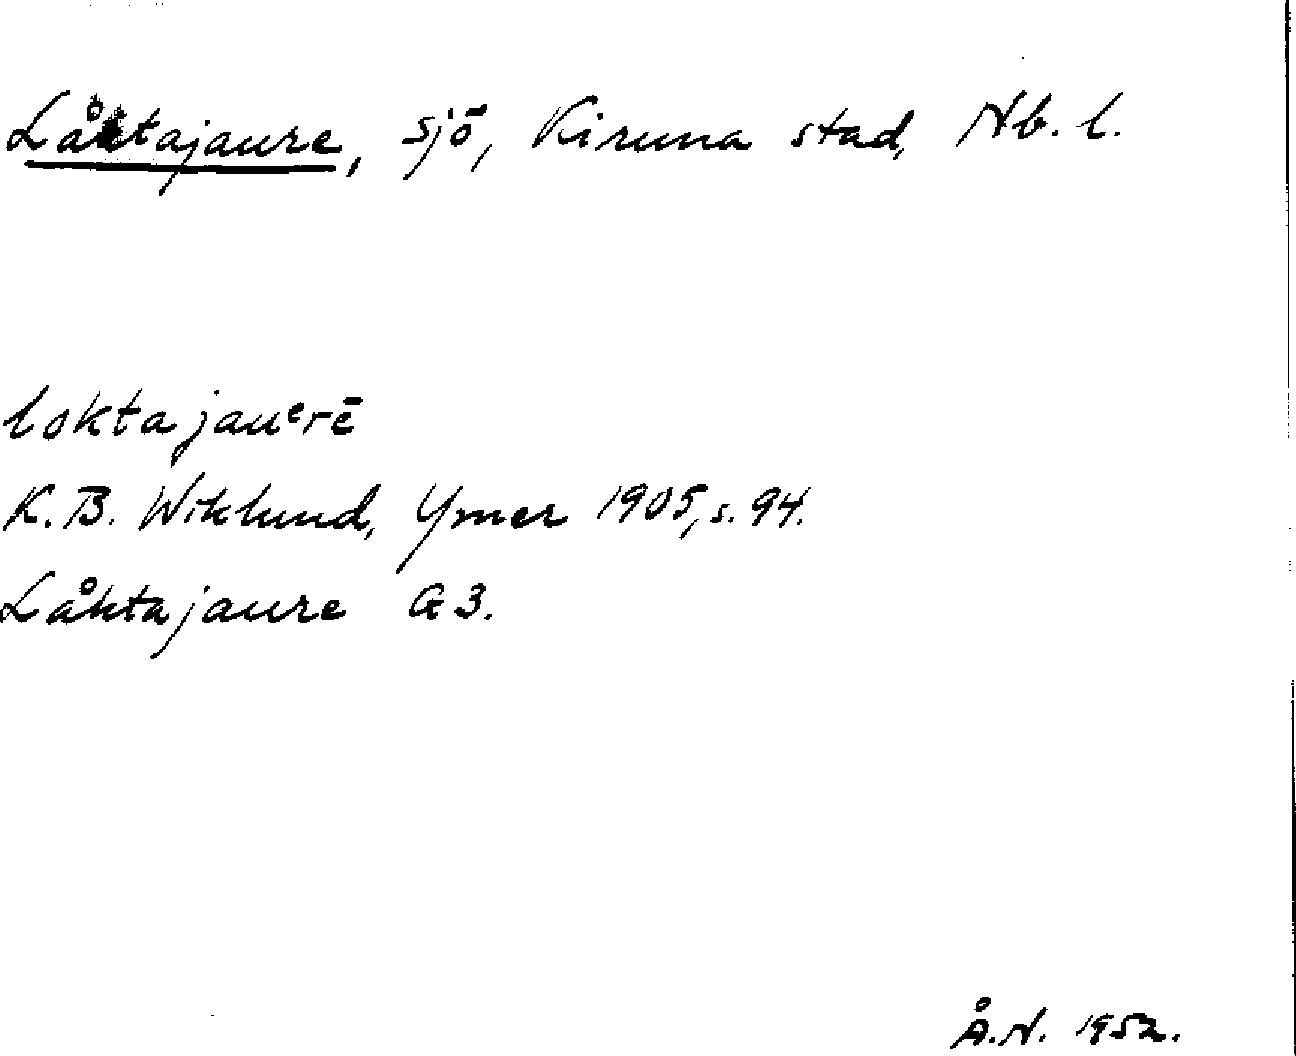 Låktajaure, sjö, Kiruna stad, Nb. l.
loktajauᵉrē
K.B. Wiklund, Ymer 1905, s. 94.
Låktajaure G3.
Å.N. 1952.